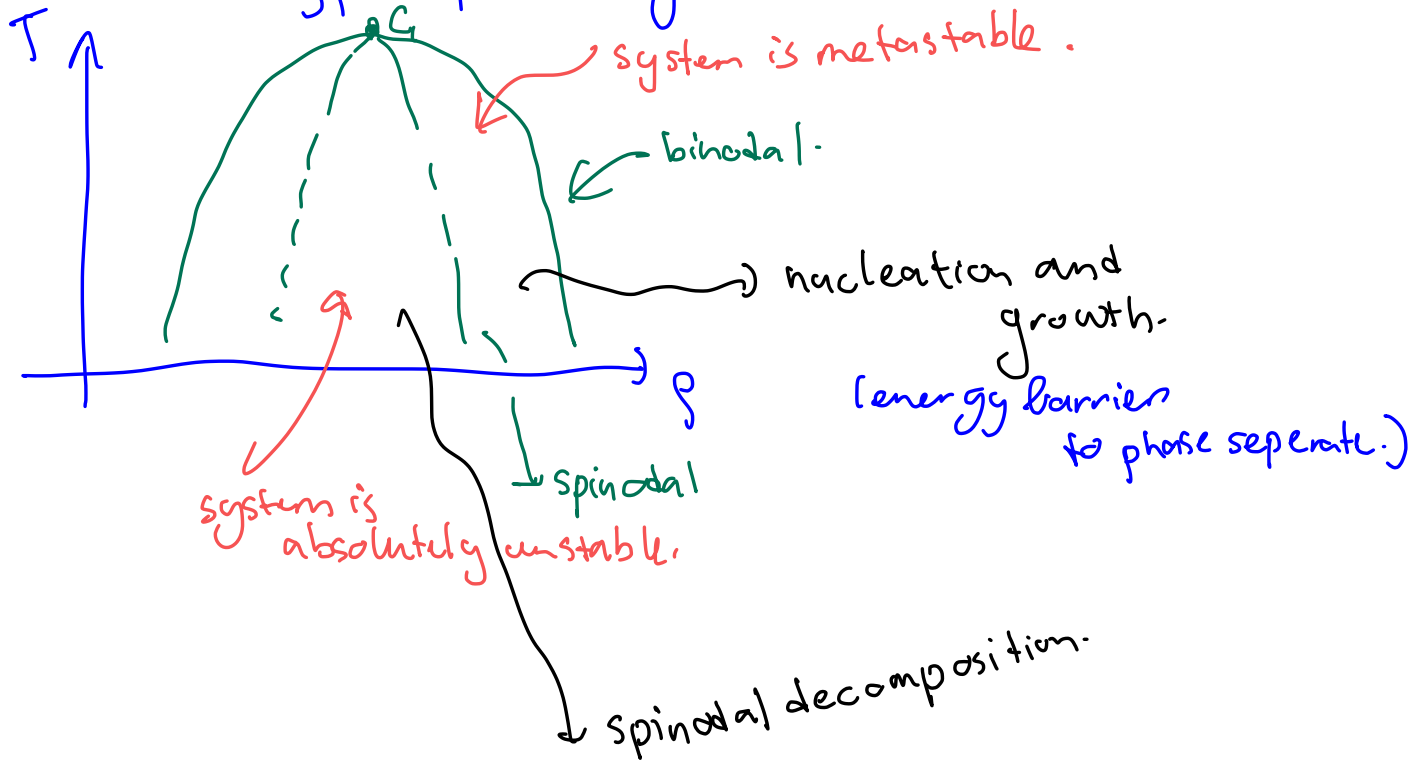 T
C
system is metastable.
binodal.
nucleation and
growth.
(energy barrier
to phase seperate.)
ρ
spinodal
system is
absolutely unstable.
spinodal decomposition.